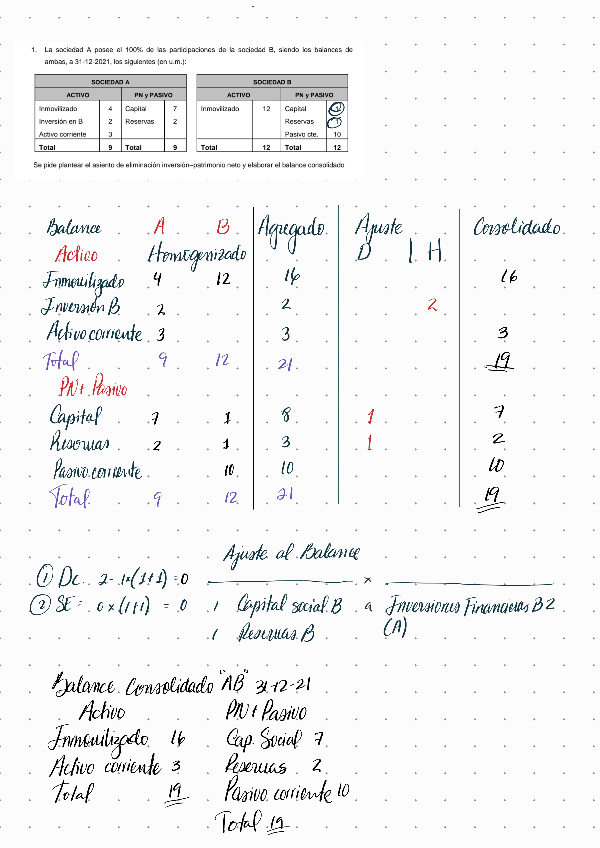 1. La sociedad A posee el 100% de las participaciones de la sociedad B, siendo los balances de
ambas, a 31-12-2021, los siguientes (en u.m.):
SOCIEDAD A
ACTIVO PN y PASIVO
Inmovilizado 4 Capital 7
Inversión en B 2 Reservas 2
Activo corriente 3
Total 9 Total 9
SOCIEDAD B
ACTIVO PN y PASIVO
Inmovilizado 12 Capital
Reservas
Pasivo cte. 10
Total 12 Total 12
Se pide plantear el asiento de eliminación inversión–patrimonio neto y elaborar el balance consolidado
Balance A B Agregado Ajuste Consolidado
Activo Homogenizado D H
Inmovilizado 4 12 16 16
Inversión B 2 2 2
Activo corriente 3 3 3
Total 9 12 21 19
PN+ Pasivo
Capital 7 1 8 1 7
Reservas 2 1 3 1 2
Pasivo corriente 10 10 10
Total 9 12 21 19
Ajuste al Balance
① Dc 2-1x(1+1) = 0 x
② SE = 0 x (1+1) = 0 1 Capital social B a Inversiones Financieras B 2
1 Reservas B (A)
Balance Consolidado "AB" 31-12-21
Activo PN + Pasivo
Inmovilizado 16 Cap. Social 7
Activo corriente 3 Reservas 2
Total 19 Pasivo corriente 10
Total 19